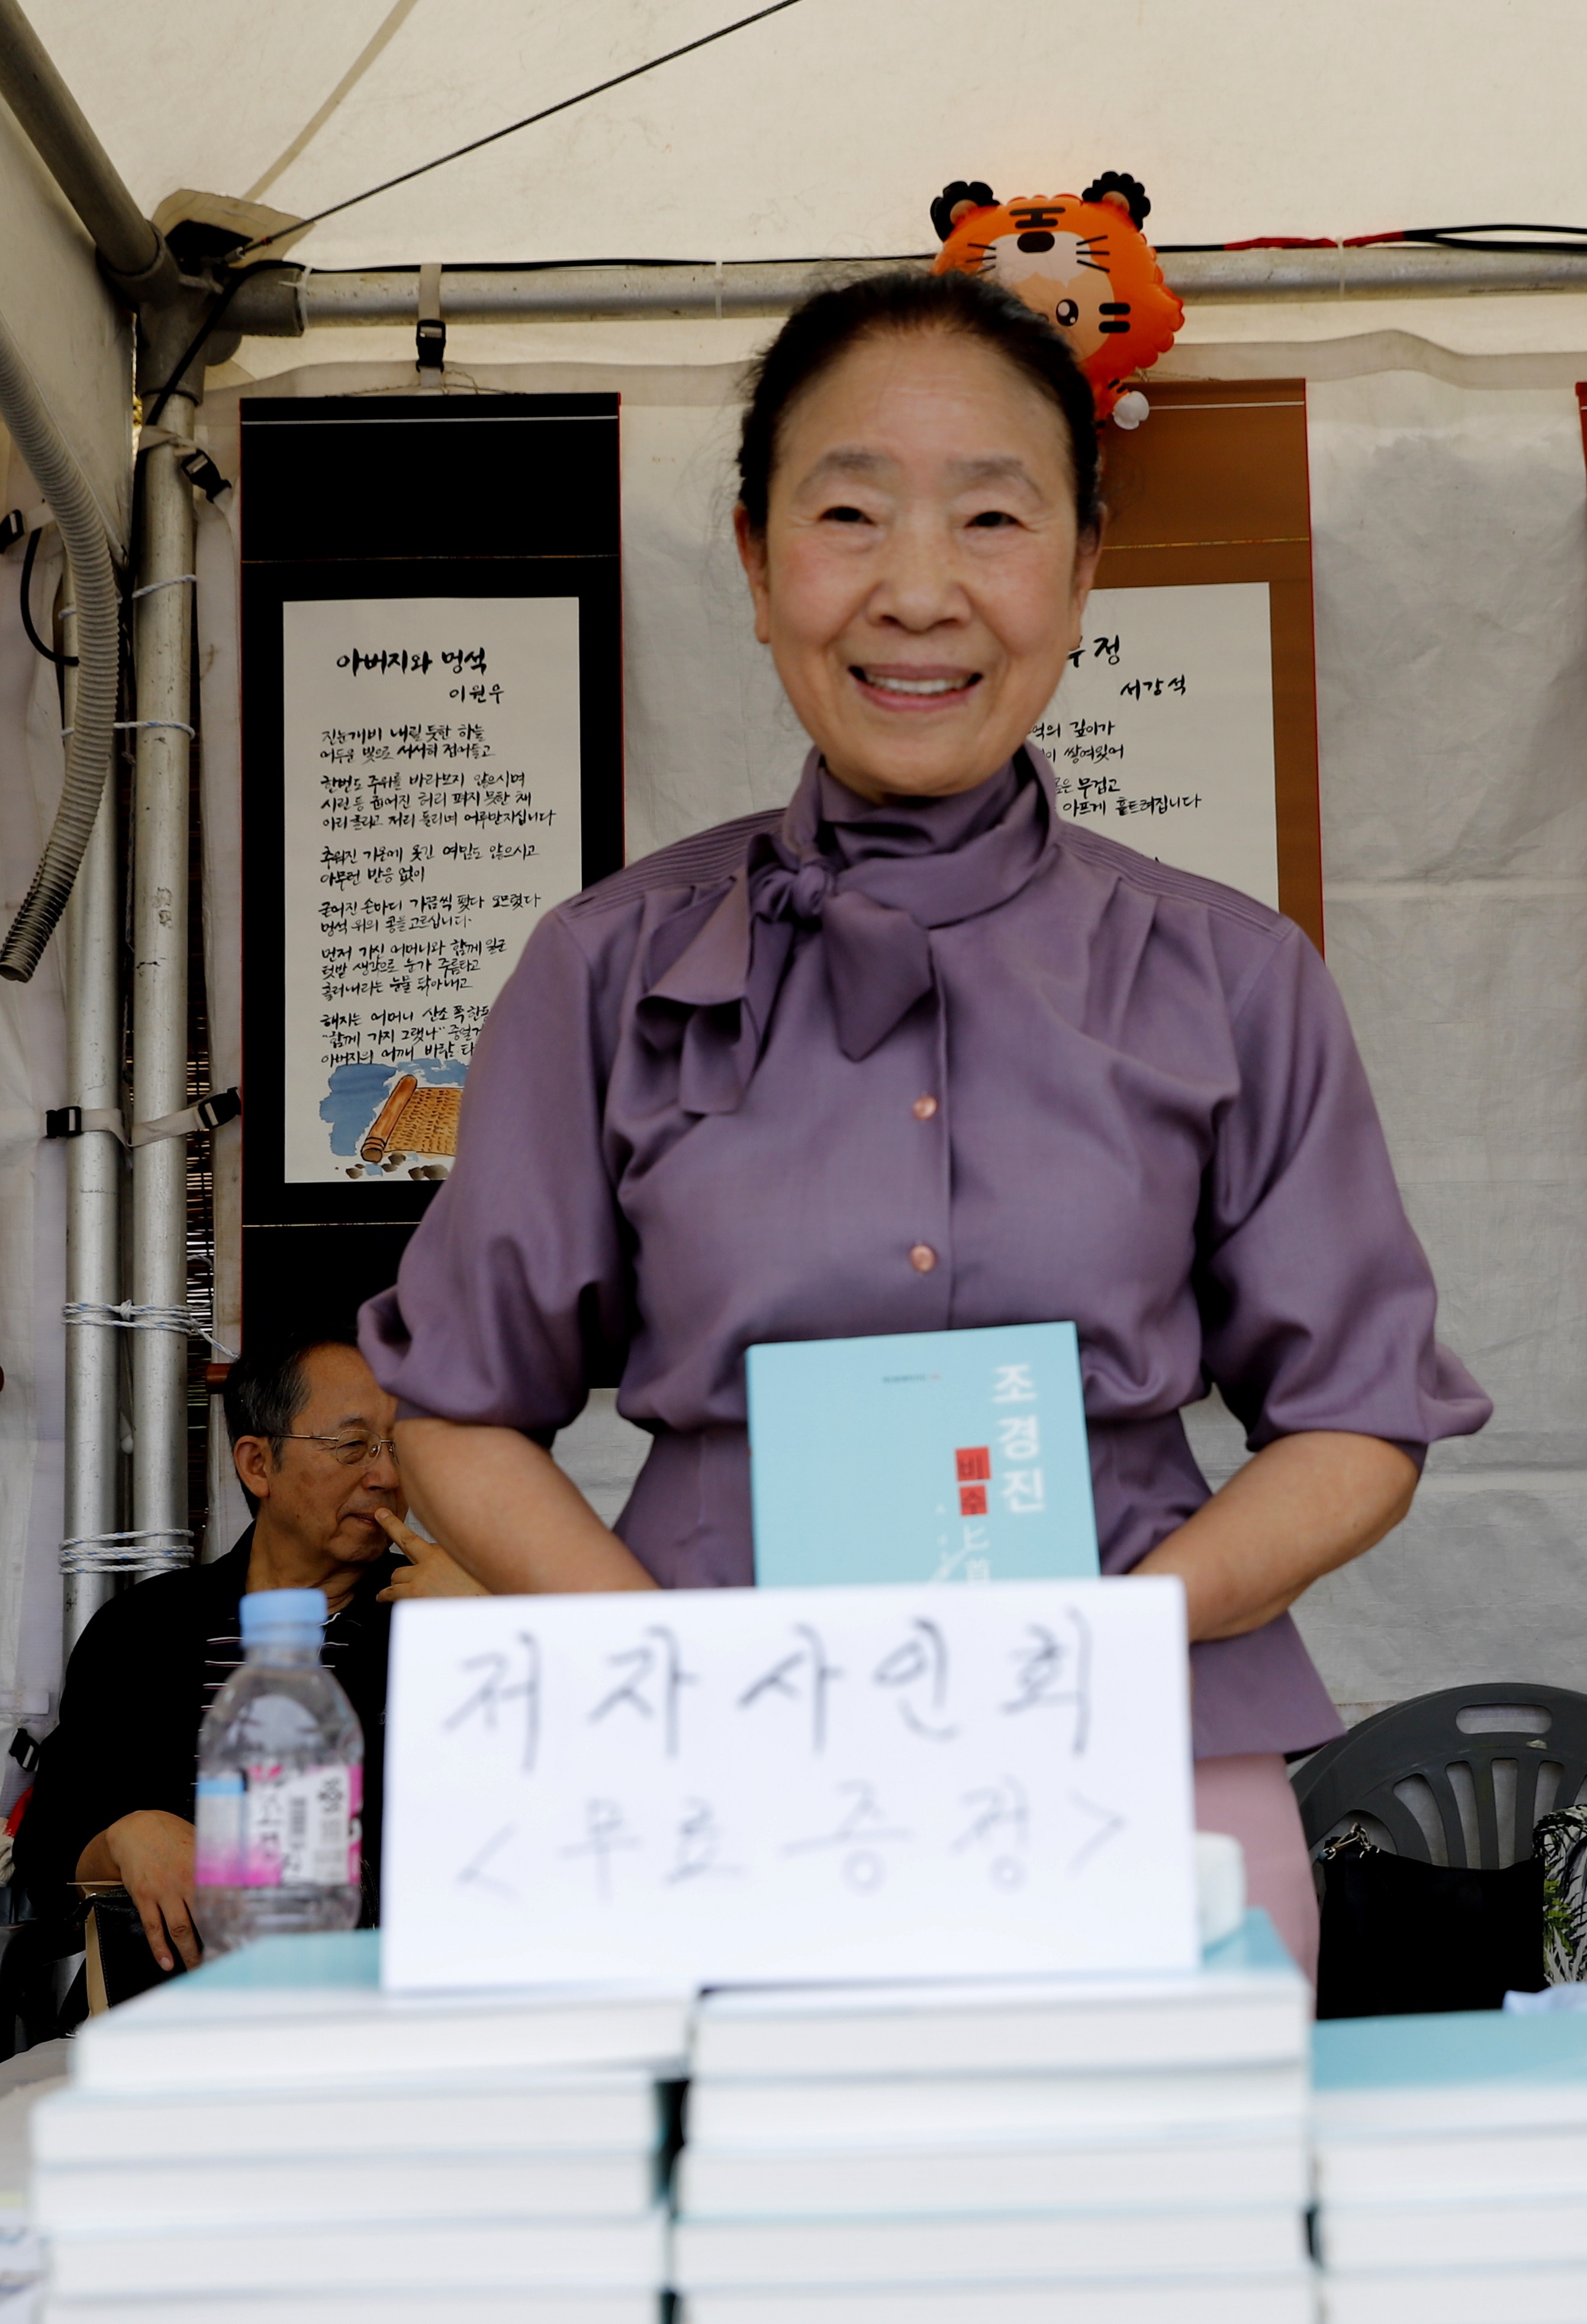 아버지와 멍석
이원우
진눈개비 내릴 듯한 하늘
어두운 빛으로 서서히 접어들고
한번도 주위를 바라보지 않으시며
시린 등 휘어진 허리 펴지 못한 채
이리 흘리고 저리 돌리며 어루만지십니다
추워진 가을에 옷긴 여밈도 않으시고
아무런 반응 없이
굳어진 손마디 가끔씩 폈다 오므렸다
멍석 위의 콩을 고르십니다
먼저 가신 어머니와 함께 일군
텃밭 생각으로 눈가 주름타고
흘러내리는 눈물 닦아내고
해지는 어머니 산소 쪽
"함께 가지 그랬나"
아버지의 어깨 바람
정
서강석
억의 깊이가
이 쌓여있어
은 무겁고
아프게 흩트려집니다
조경진
비수
匕首
저자 사인회
<무료 증정>